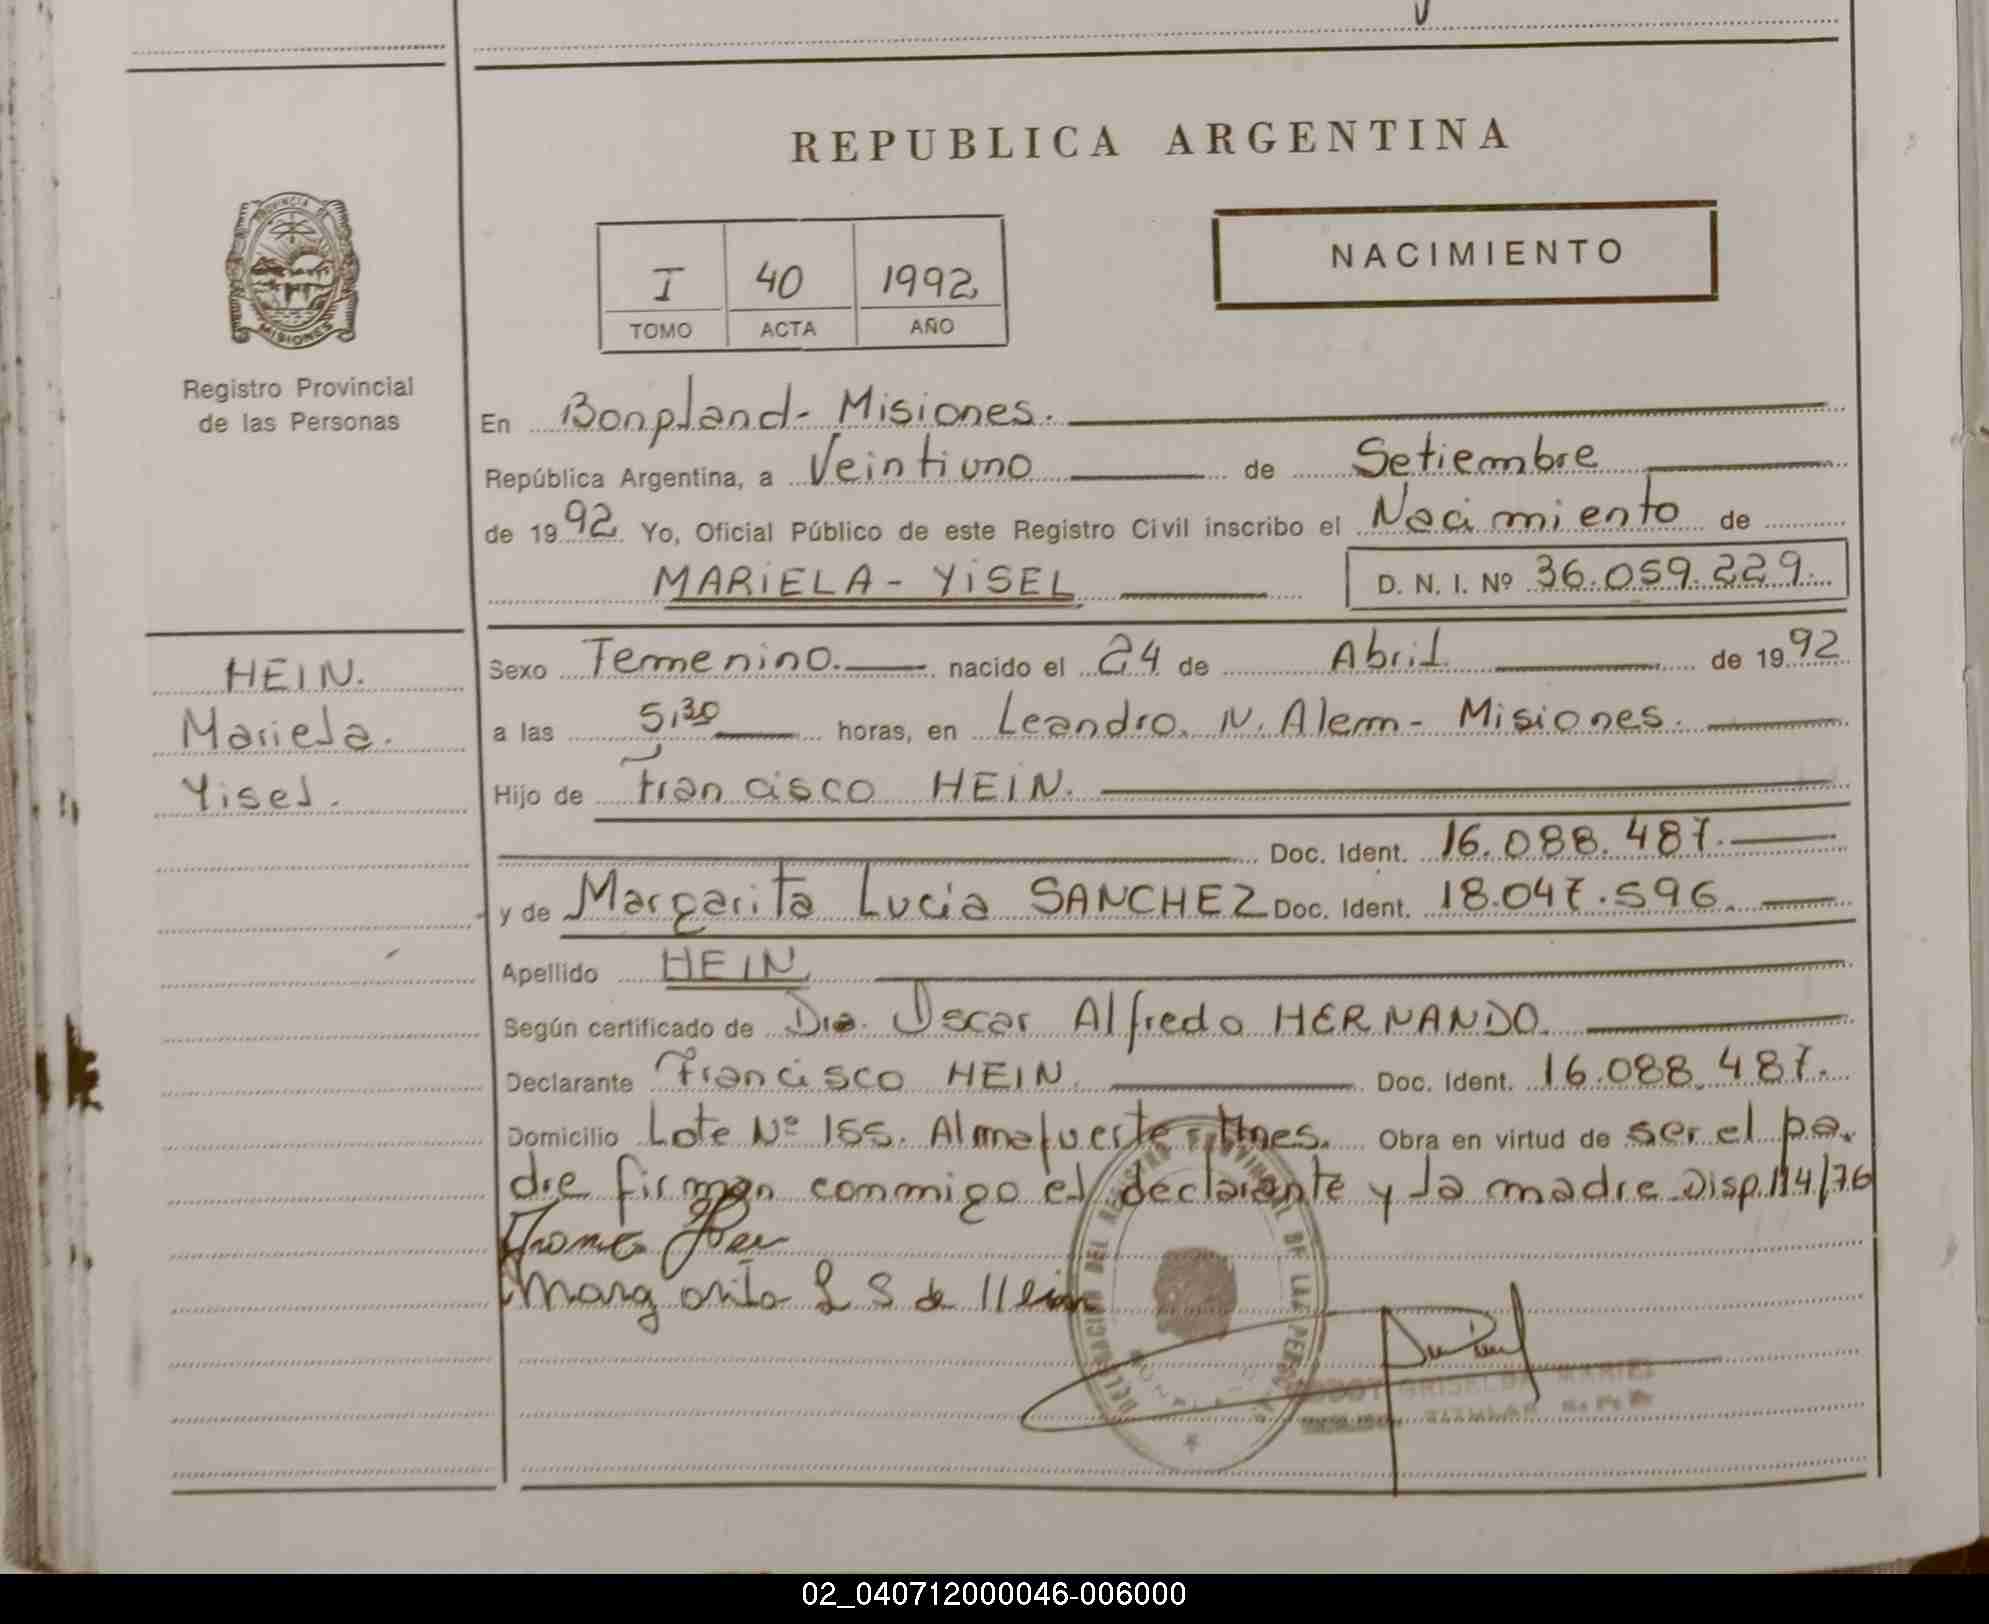 REPUBLICA ARGENTINA
NACIMIENTO
I 40 1992
TOMO ACTA AÑO
PROVINCIA DE
MISIONES
Registro Provincial
de las Personas
En Bonpland- Misiones.
República Argentina, a Veintiuno de Setiembre
de 1992 Yo, Oficial Público de este Registro Civil inscribo el Nacimiento de
MARIELA - YISEL D. N. I. Nº 36.059.229.
HEIN.
Mariela.
Yisel.
Sexo Femenino. nacido el 24 de Abril de 1992
a las 5,30 horas, en Leandro. N. Alem - Misiones.
Hijo de Francisco HEIN.
Doc. Ident. 16.088.487.
y de Margarita Lucia SANCHEZ Doc. Ident. 18.047.596.
Apellido HEIN
Según certificado de Dra. Oscar Alfredo HERNANDO.
Declarante Francisco HEIN Doc. Ident. 16.088.487.
Domicilio Lote Nº 155. Almafuerte - Mnes. Obra en virtud de ser el pa.
dre firman conmigo el declarante y la madre Disp. 114/76
Margarita L S de Hein
DELEGACION DEL REGISTRO PROVINCIAL DE LAS PERSONAS
GRISELDA MARIEL
TITULAR
02_040712000046-006000